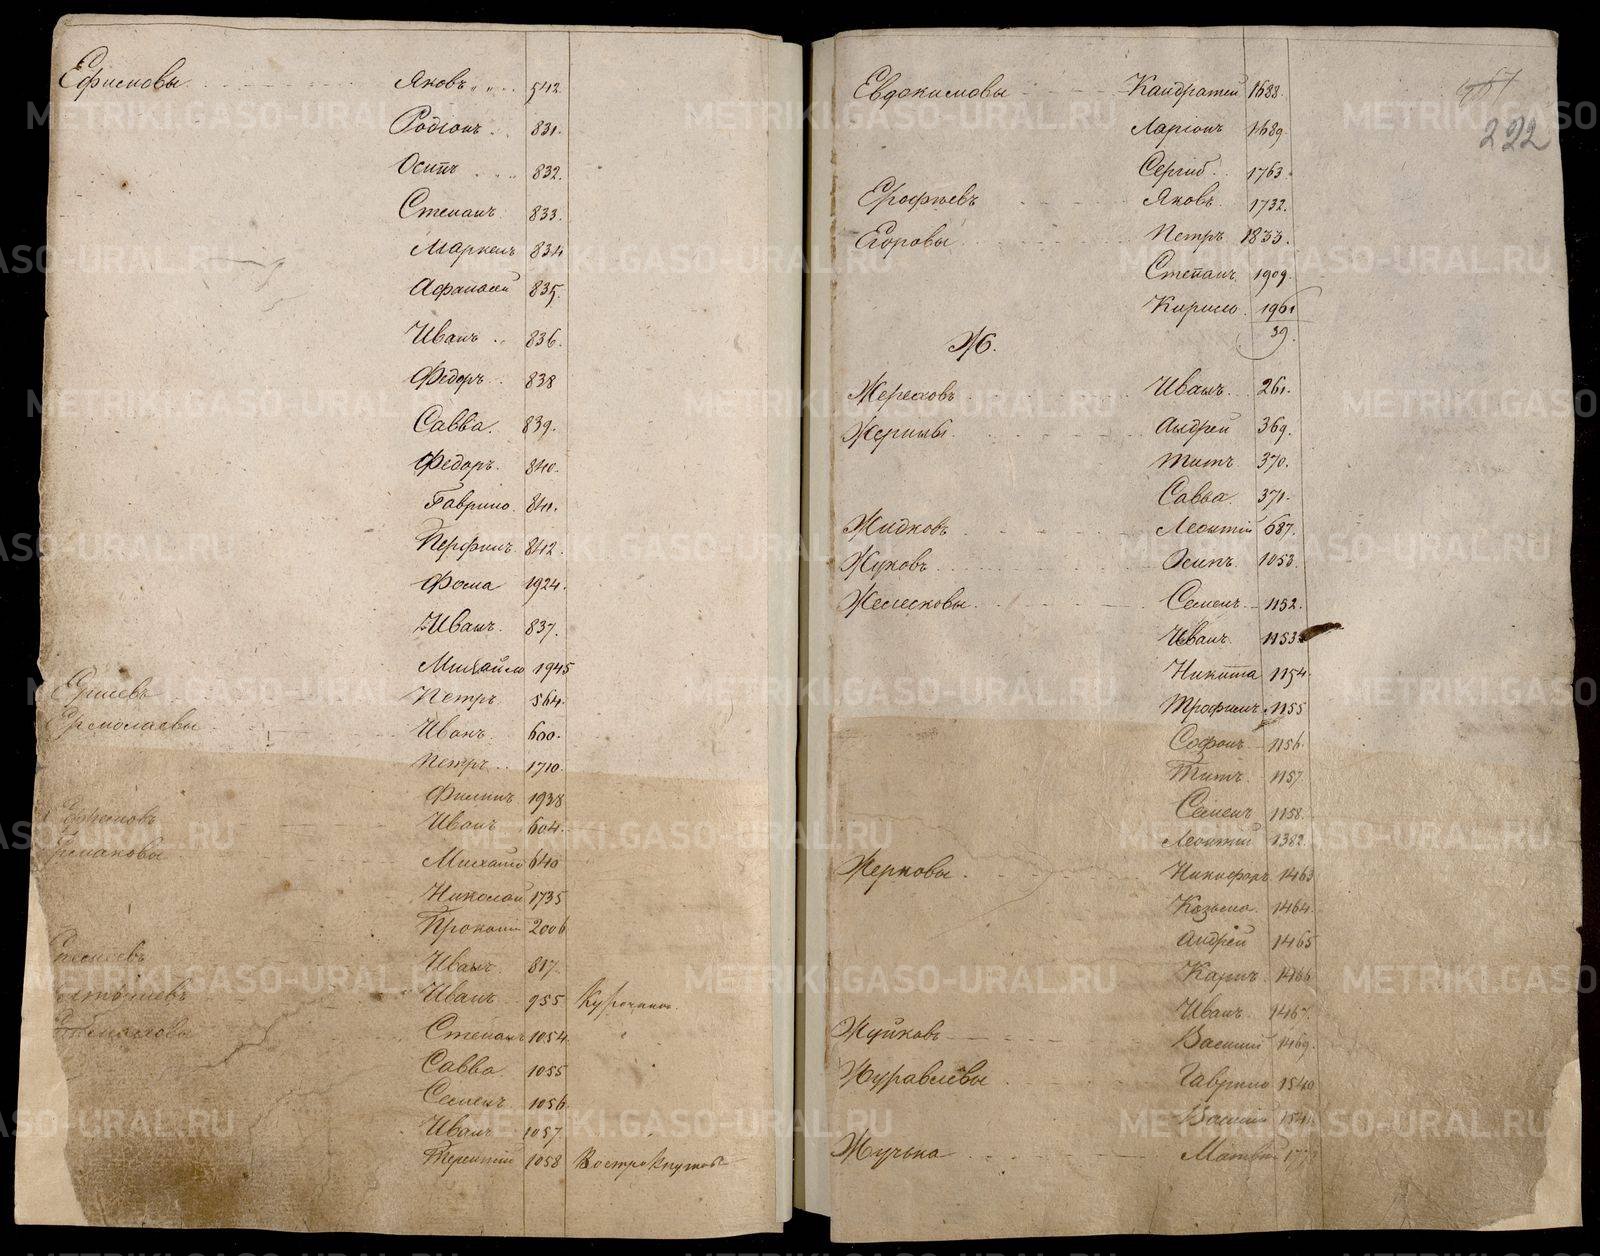 Ефимовы Яковъ 542.
Родіонъ 831.
Осипъ 832.
Степанъ 833.
Маркелъ 834
Афанасей 835.
Иванъ 836.
Федоръ 838
Савва. 839.
Федоръ. 840.
Гаврило 841.
Перфилъ. 842.
Фома 1924.
Иванъ. 837.
Михайло 1945
Петръ. 564.
Ермолаевы Иванъ. 600.
Петръ 1710.
Филипъ 1938
Иванъ 604.
Ермаковы Михайло 640
Николай 1735
Прокопій 2006
Иванъ. 817.
Иванъ 955
Степанъ 1054.
Савва. 1055
Семенъ 1056.
Иванъ 1057.
Терентій 1058
222
Евдокимовы Кандратей 1688.
Ларіонъ 1689.
Сергій 1763.
Ерофѣевъ Яковъ. 1732.
Егоровы Петръ 1833.
Степанъ. 1909.
Кирило. 1961
39.
Ж.
Иванъ. 261.
Андрей 369.
Титъ 370.
Савва. 371.
Жидковъ Леонтій 687.
Жуковъ Осипъ. 1053.
Семенъ 1152.
Иванъ. 1153
Никита 1154
Трофимъ 1155
Софонъ 1156.
Титъ. 1157.
Семенъ 1158.
Леонтій 1382.
Жерновы Никифоръ 1463
Козьма. 1464.
Андрей 1465
Карпъ. 1466
Иванъ. 1467.
Жуйковъ Василій 1469.
Журавлевы Гаврило 1540
Василій 1541.
Матвѣй
METRIKI.GASO-URAL.RU